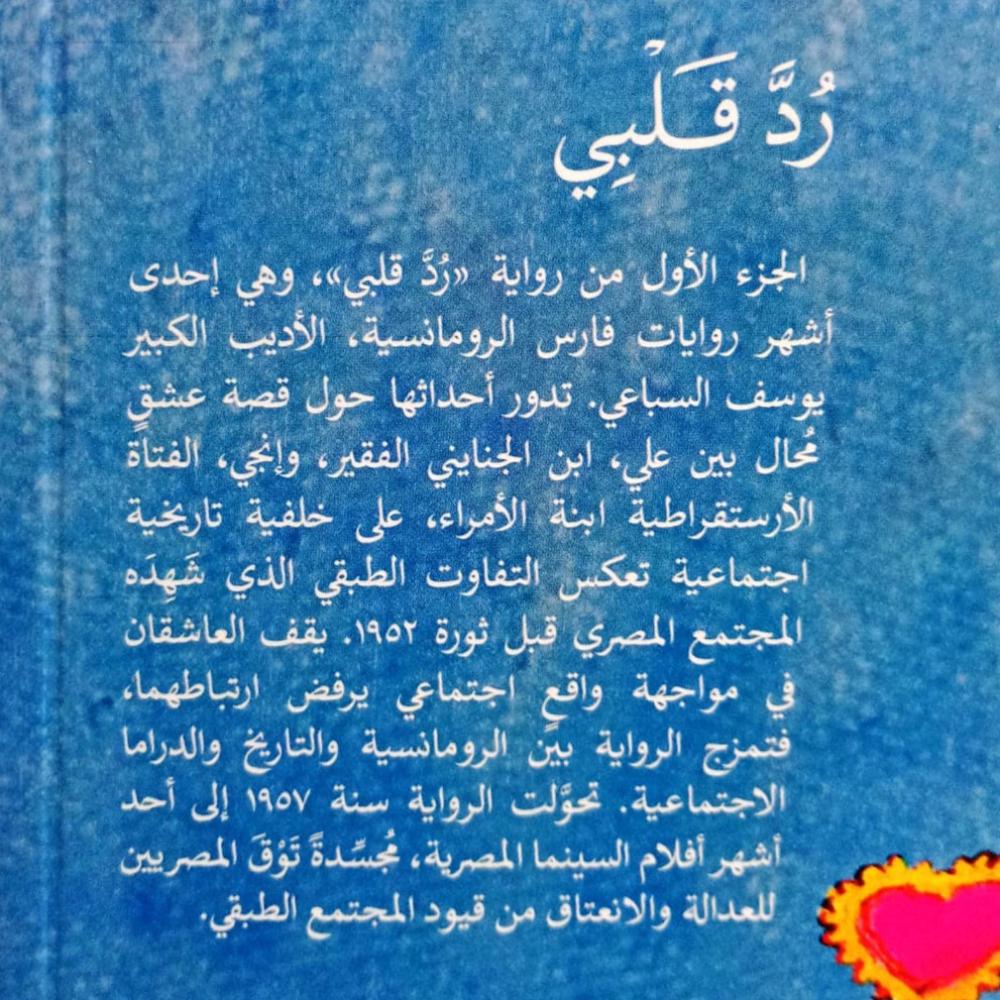 رُدَّ قَلْبِي
الجزء الأول من رواية «رُدَّ قلبي»، وهي إحدى
أشهر روايات فارس الرومانسية، الأديب الكبير
يوسف السباعي. تدور أحداثها حول قصة عشقٍ
مُحال بين علي، ابن الجنايني الفقير، وإنجي، الفتاة
الأرستقراطية ابنة الأمراء، على خلفية تاريخية
اجتماعية تعكس التفاوت الطبقي الذي شَهِدَه
المجتمع المصري قبل ثورة ١٩٥٢. يقف العاشقان
في مواجهة واقعٍ اجتماعي يرفض ارتباطهما،
فتمزج الرواية بين الرومانسية والتاريخ والدراما
الاجتماعية. تحوَّلت الرواية سنة ١٩٥٧ إلى أحد
أشهر أفلام السينما المصرية، مُجسِّدةً تَوْقَ المصريين
للعدالة والانعتاق من قيود المجتمع الطبقي.